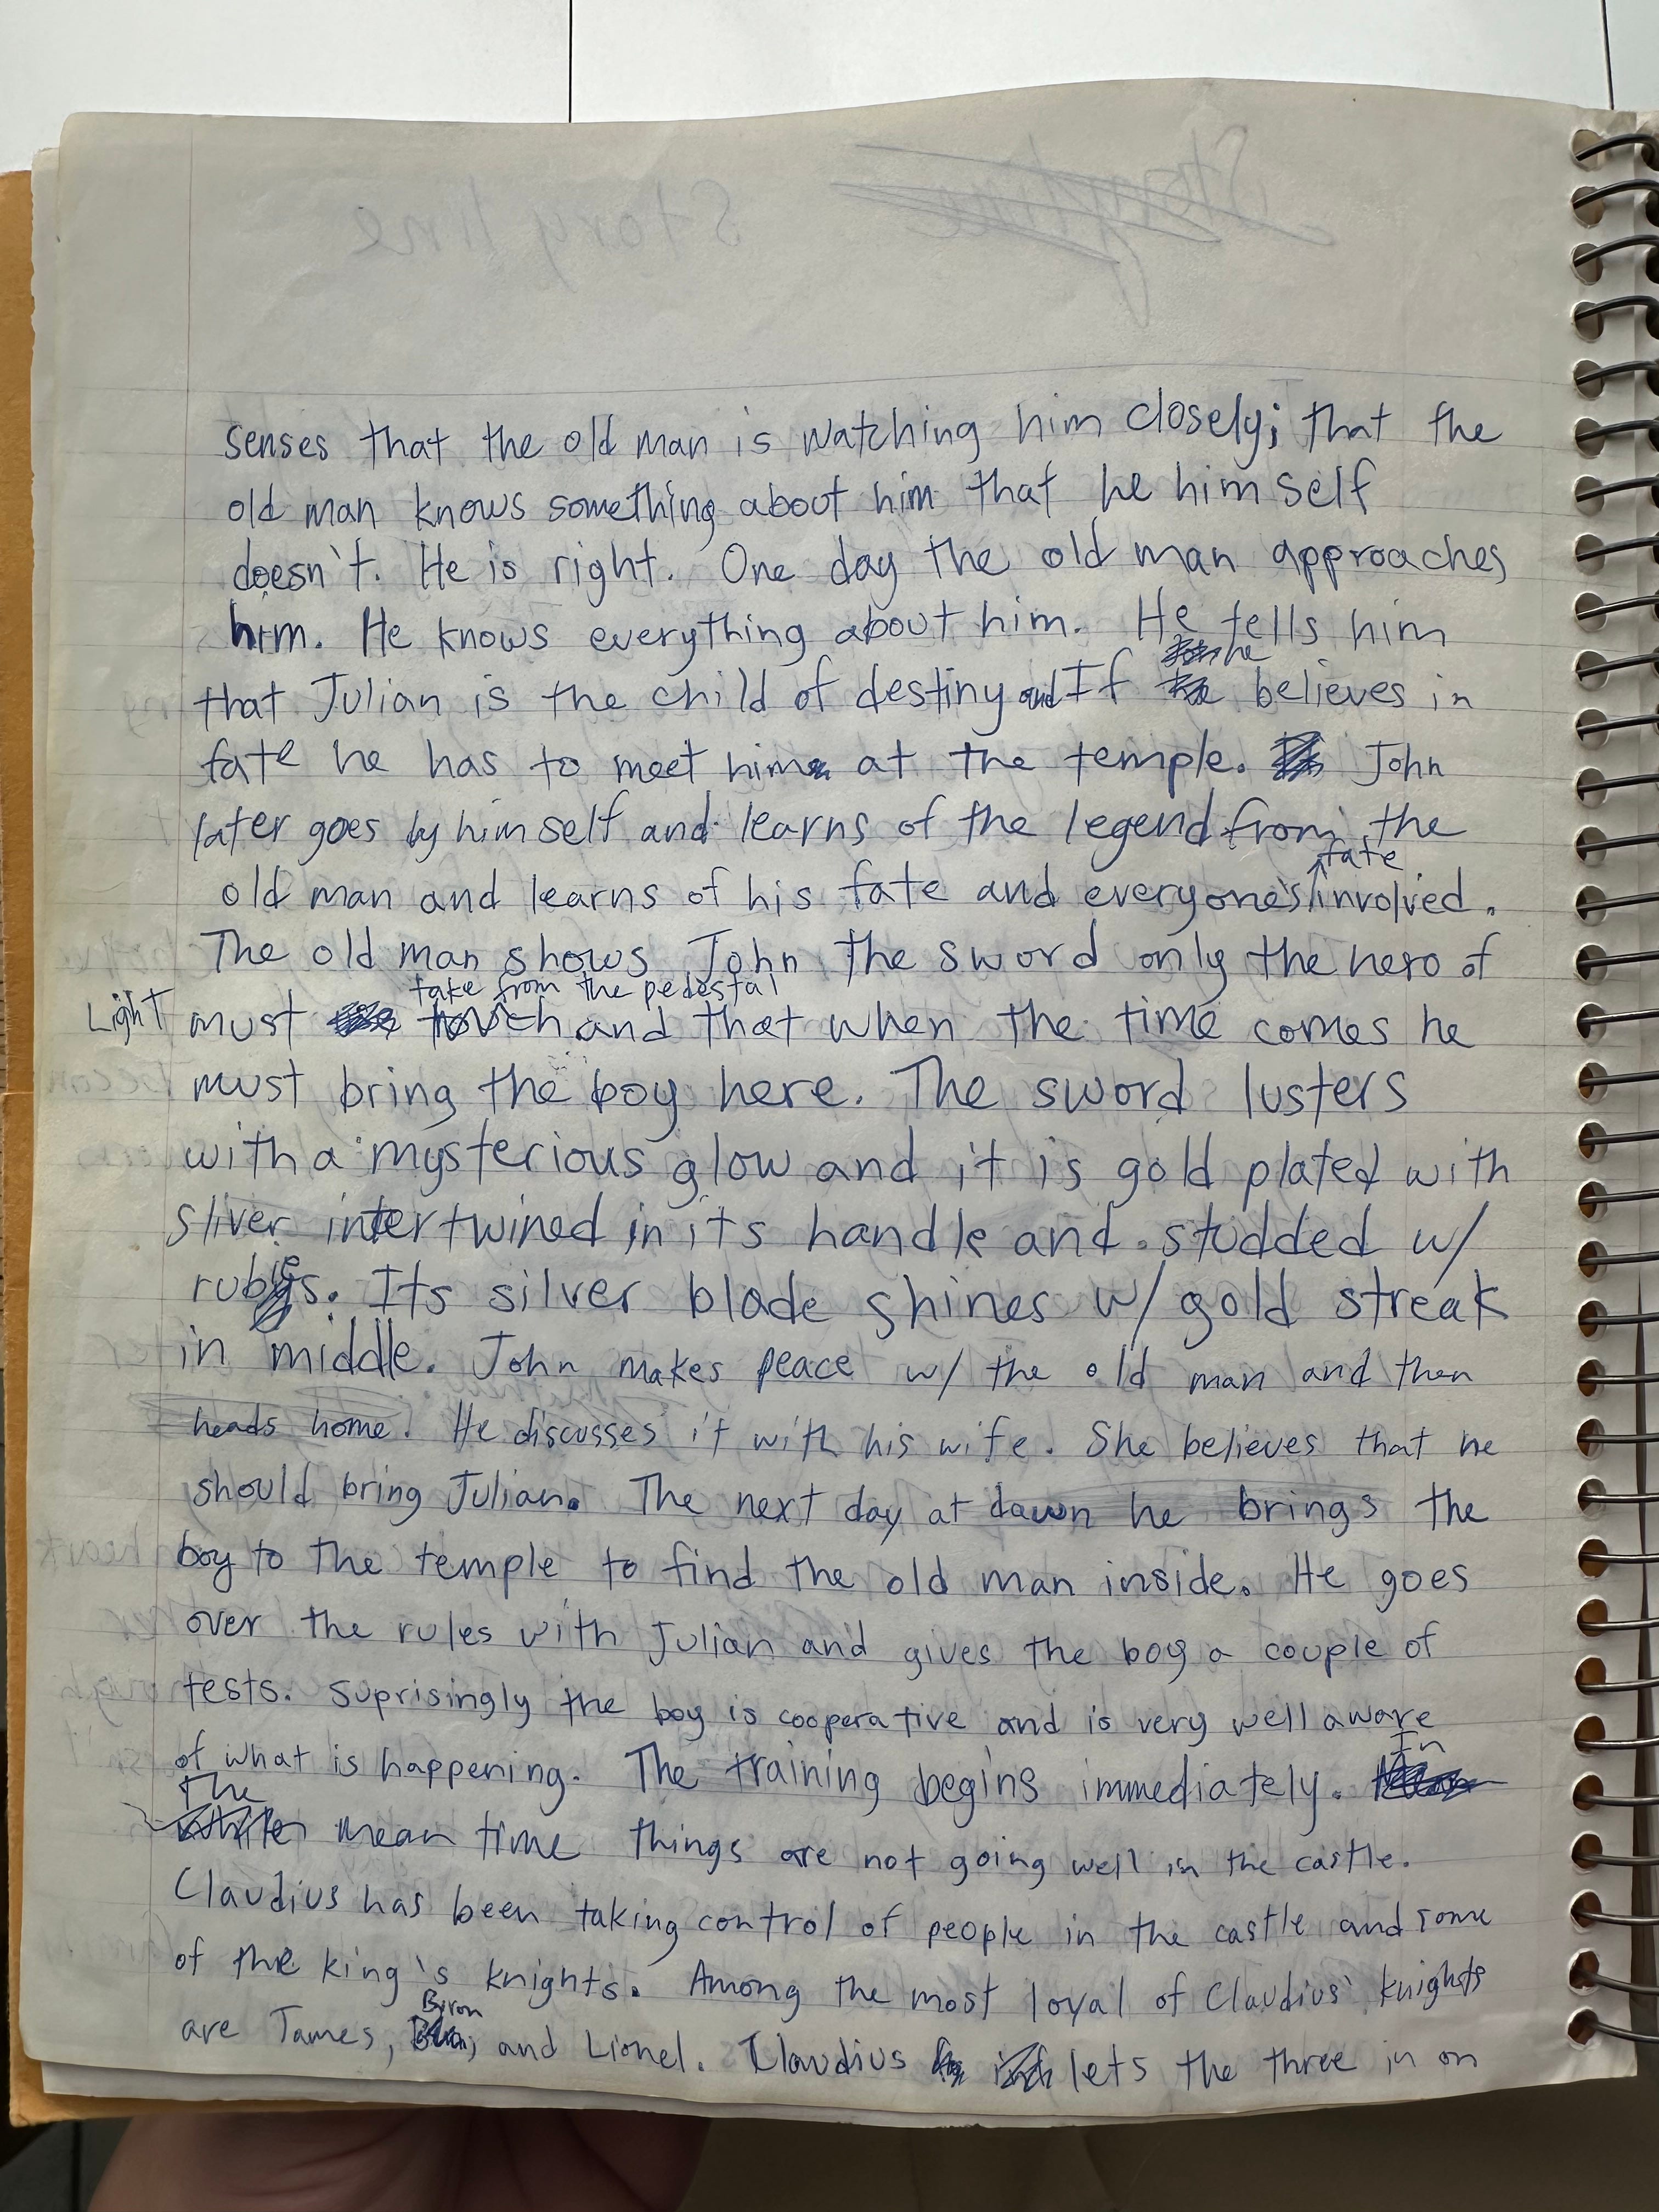 Story line
senses that the old man is watching him closely; that the
old man knows something about him that he himself
doesn't. He is right. One day the old man approaches
him. He knows everything about him. He tells him
that Julian is the child of destiny and If he believes in
fate he has to meet him at the temple. John
later goes by himself and learns of the legend from the
old man and learns of his fate and everyone's fate involved.
The old man shows John the sword only the hero of
Light must take from the pedestal and that when the time comes he
must bring the boy here. The sword lusters
with a mysterious glow and it is gold plated with
sliver intertwined in its handle and studded w/
rubies. Its silver blade shines w/ gold streak
in middle. John makes peace w/ the old man and then
heads home. He discusses it with his wife. She believes that he
should bring Julian. The next day at dawn he brings the
boy to the temple to find the old man inside. He goes
over the rules with Julian and gives the boy a couple of
tests. Suprisingly the boy is cooperative and is very well aware
of what is happening. The training begins immediately. In
The mean time things are not going well in the castle.
Claudius has been taking control of people in the castle and some
of the king's knights. Among the most loyal of Claudius' knights
are James, Byron, and Lionel. Claudius lets the three in on